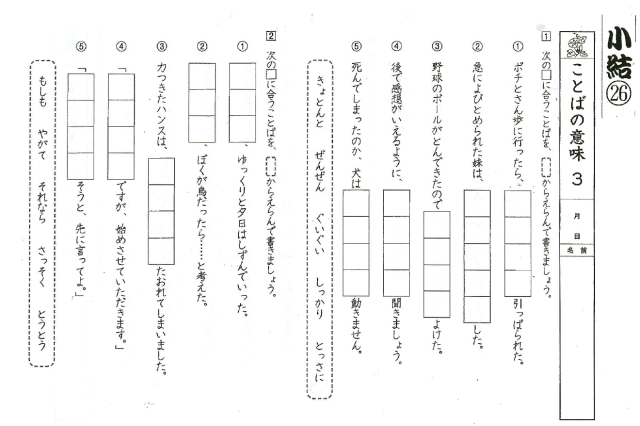 小結㉖
ことばの意味 3
月 日
名前
1 次の□に合うことばを、[ ]からえらんで書きましょう。
① ポチとさん歩に行ったら、□□□□引っぱられた。
② 急によびとめられた妹は、□□□□□した。
③ 野球のボールがとんできたので□□□□よけた。
④ 後で感想がいえるように、□□□□聞きましょう。
⑤ 死んでしまったのか、犬は□□□□動きません。
きょとんと ぜんぜん ぐいぐい しっかり とっさに
2 次の□に合うことばを、[ ]からえらんで書きましょう。
① □□□、ゆっくりと夕日はしずんでいった。
② □□□、ぼくが鳥だったら……と考えた。
③ 力つきたハンスは、□□□□たおれてしまいました。
④ 「□□□□ですが、始めさせていただきます。」
⑤ 「□□□□そうと、先に言ってよ。」
もしも やがて それなら さっそく とうとう